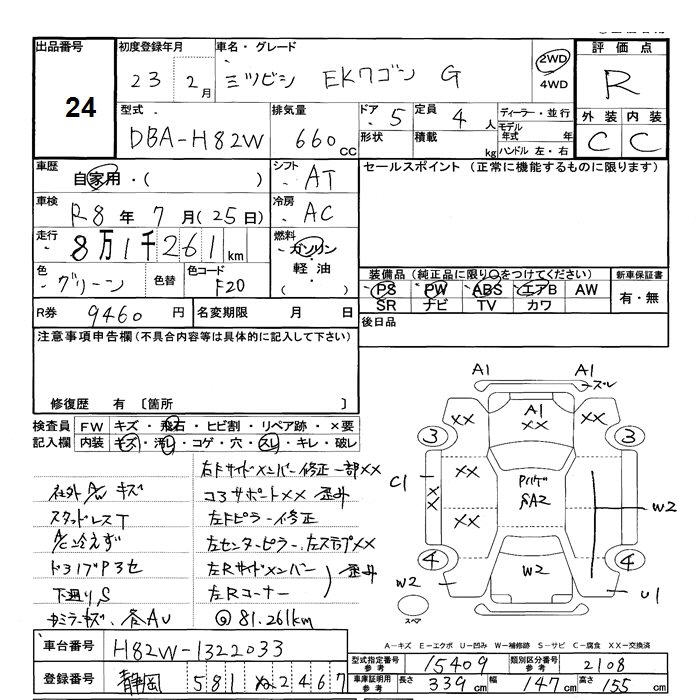 出品番号
24
初度登録年月
23 2月
車名・グレード
ミツビシ EKワゴン G
2WD
4WD
評価点
R
外装 内装
C C
型式
DBA-H82W
排気量
660 CC
ドア 5
形状
定員 4 人
積載 kg
ディーラー・並行
モデル年式 年
ハンドル 左・右
車歴
自家用・( )
シフト
AT
セールスポイント (正常に機能するものに限ります)
車検
R8 年 7 月(25日)
冷房
AC
走行
8万1千261 km
燃料
ガソリン
軽油
( )
色
グリーン
色替
色コード
F20
装備品 (純正品に限り○をつけてください)
PS PW ABS エアB AW
SR ナビ TV カワ
新車保証書
有・無
R券 9460 円
名変期限 月 日
後日品
注意事項申告欄(不具合内容等は具体的に記入して下さい)
修復歴 有 〔箇所 〕
検査員記入欄
FW キズ・飛石・ヒビ割・リペア跡・×要
内装 キズ・汚レ・コゲ・穴・スレ・キレ・破レ
社外A/Wキズ
スタッドレスT
A/C冷えず
下廻りS
右Fサイドメンバー修正一部××
コアサポート×× 歪み
左Fピラー修正
左センターピラー、左ステップ××
左Rサイドメンバー
左Rコーナー
歪み
@81.261km
A1 A1
ズレ
A1
××
×× ××
3 3
C1
××
××
××
SA2
W2
4 4
W2
W2
U1
スペア
A-キズ E-エクボ U-凹み W-補修跡 S-サビ C-腐食 XX-交換済
車台番号 H82W-1322033
登録番号 静岡 581 2467
型式指定番号 参考 15409
類別区分番号 参考 2108
車庫証明用 参考 長さ 339cm 幅 147cm 高さ 155cm